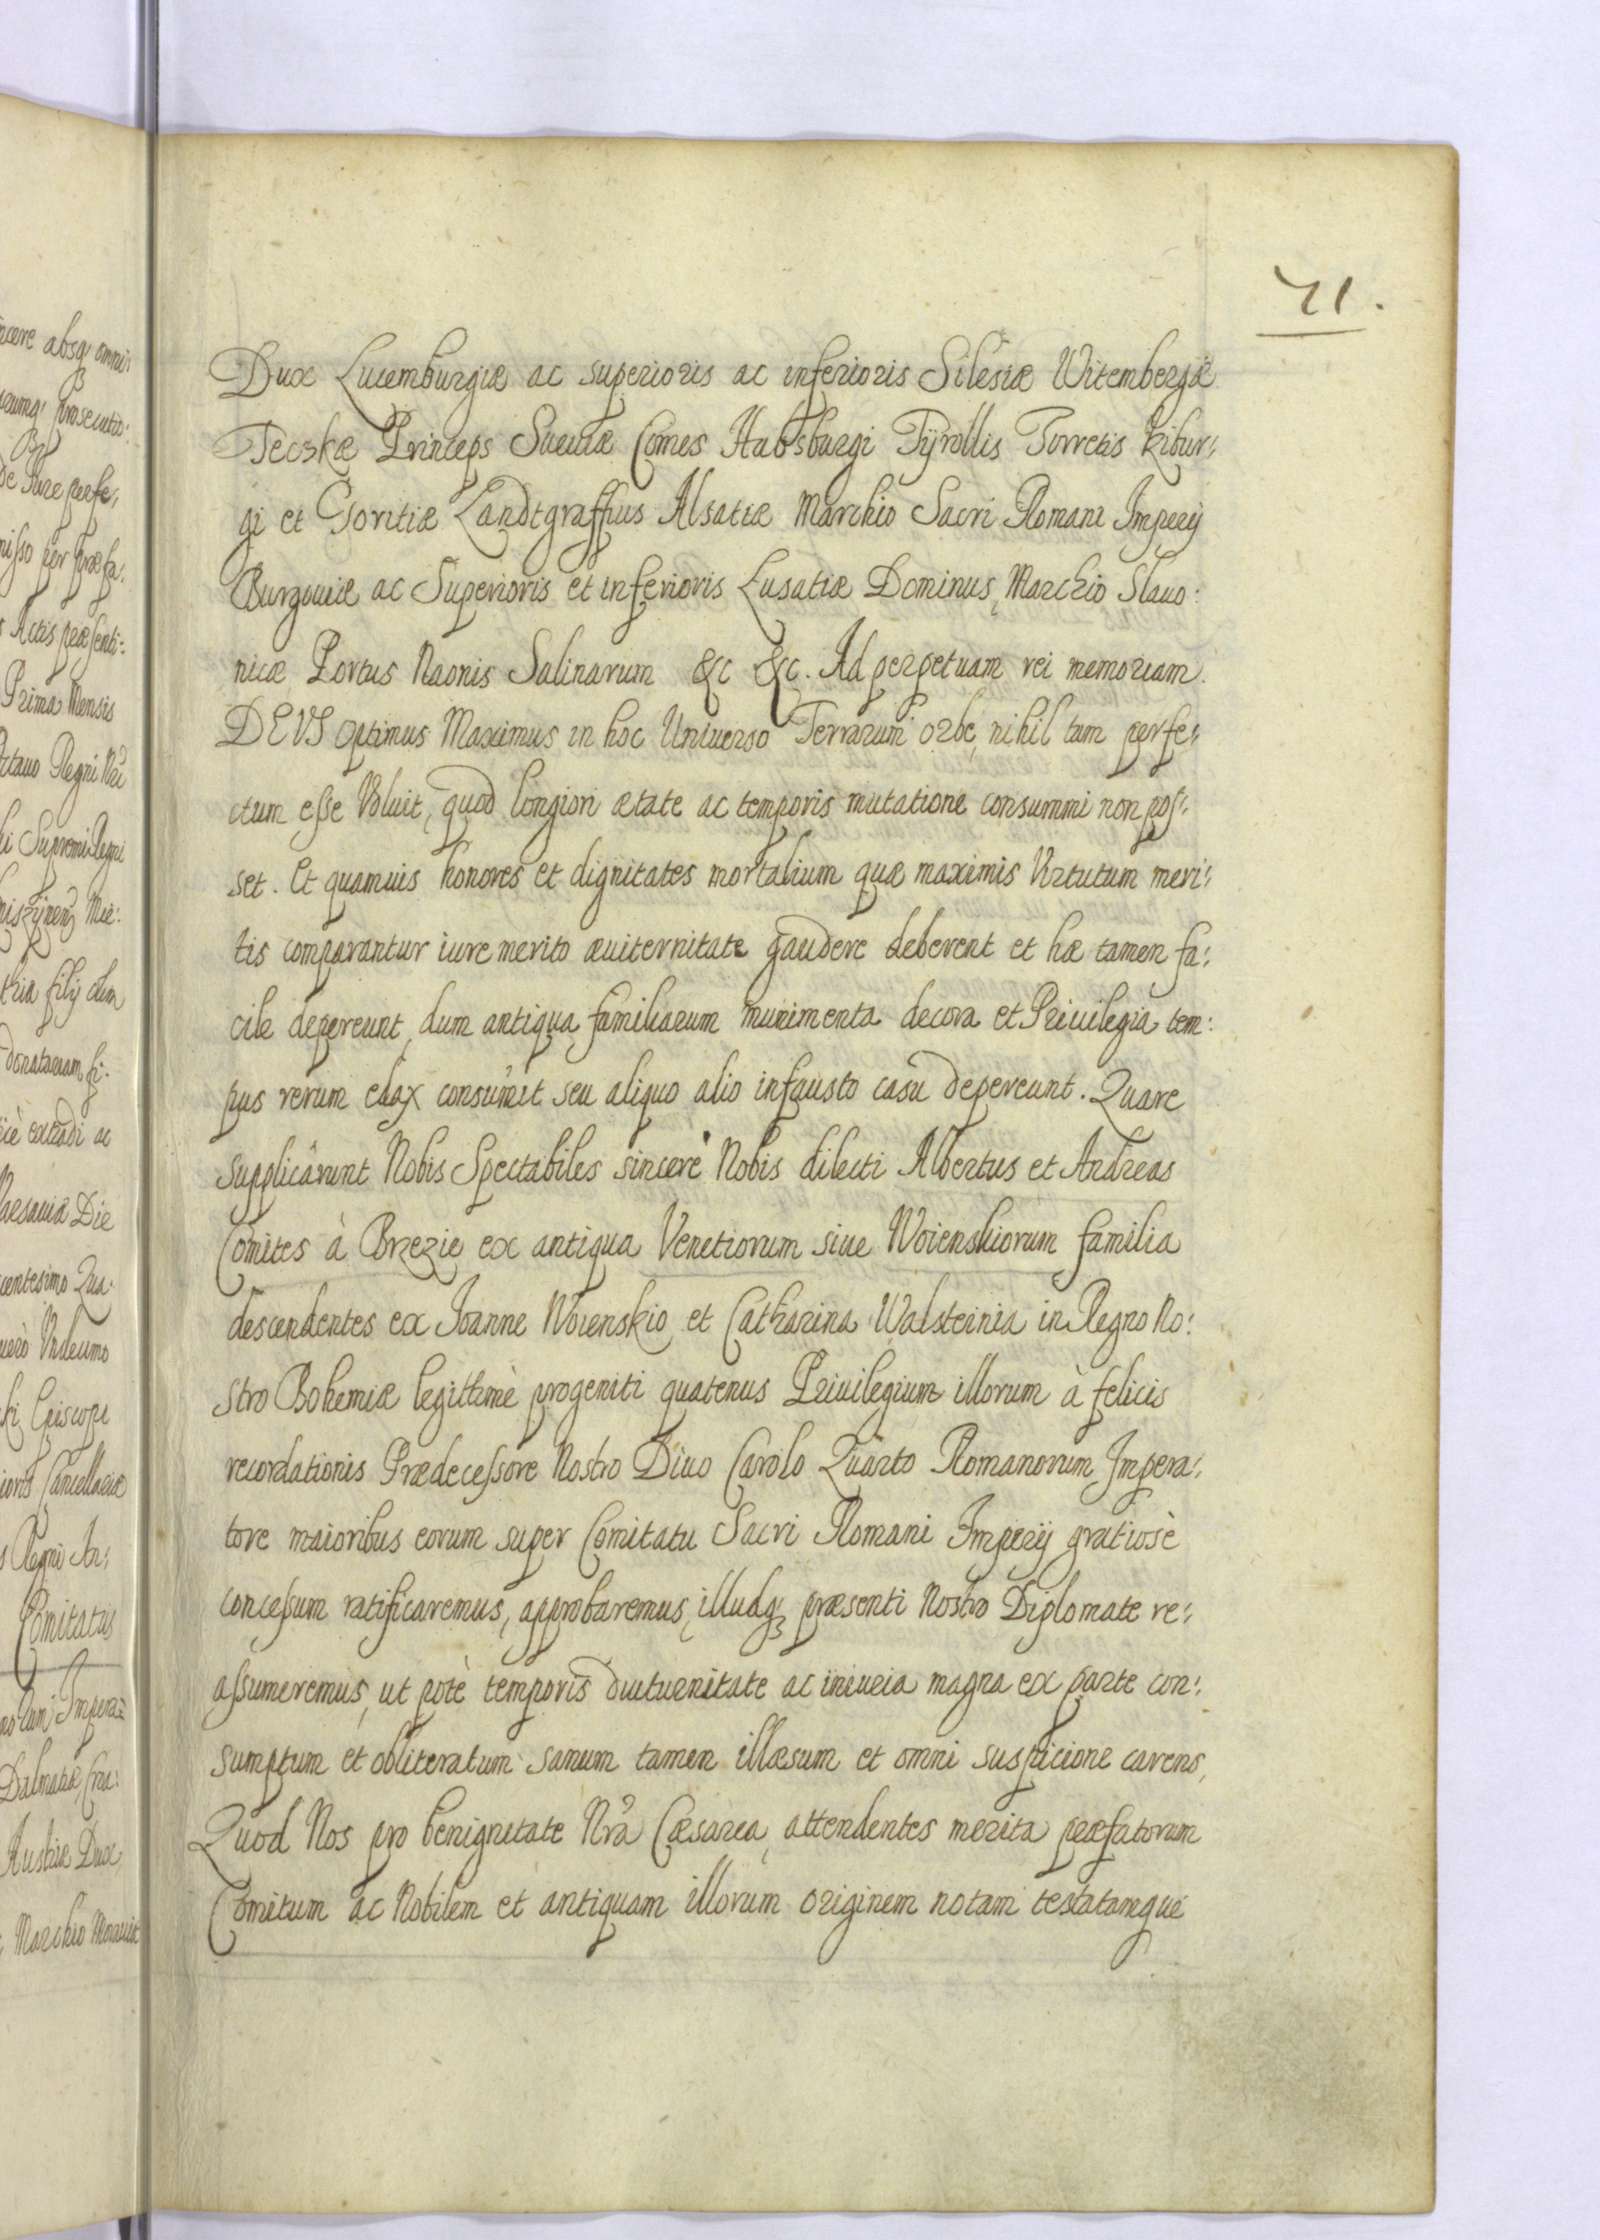 71.
Dux Lucemburgiæ ac superioris ac inferioris Silesiæ Witembergæ
Tecskæ Princeps Sueuiæ Comes Habsburgi Tÿrollis Torretis Kibur:
gi et Goritiæ Landtgraffius Alsatiæ Marchio Sacri Romani Imperij
Burgouiæ ac Superioris et inferioris Lusatiæ Dominus, Marchio Slauo:
nicæ Portus Naonis Salinarum &c &c. Ad perpetuam rei memoriam.
DEVS Optimus Maximus in hoc Uniuerso Terrarum orbe, nihil tam perfe:
ctum esse Voluit, quod longiori ætate ac temporis mutatione consummi non pos:
set. Et quamuis honores et dignitates mortalium quæ maximis Virtutum meri:
tis comparantur iure merito æuiternitate gaudere deberent et hæ tamen fa:
cile depereunt, dum antiqua familiarum munimenta decora et Priuilegia tem:
pus rerum edax consumit seu aliquo alio infausto casu depereunt. Quare
supplicârunt Nobis Spectabiles sincerè Nobis dilecti Albertus et Andreas
Comites à Brezie ex antiqua Venetiorum siue Woienskiorum familia
descendentes ex Joanne Woienskio et Catharina Walsteinia in Regno No:
stro Bohemiæ legittimè progeniti quatenus Priuilegium illorum à felicis
recordationis Prædecessore Nostro Diuo Carolo Quarto Romanorum Impera:
tore maioribus eorum super Comitatu Sacri Romani Imperij gratiosè
concessum ratificaremus, approbaremus, illudq; præsenti Nostro Diplomate re:
assumeremus, ut potè temporis diuturnitate ac iniuria magna ex parte con:
sumptum et obliteratum sanum tamen illæsum et omni suspicione carens,
Quod Nos pro benignitate Nrã Cæsarea, attendentes merita præfatorum
Comitum ac Nobilem et antiquam illorum originem notam testatamque